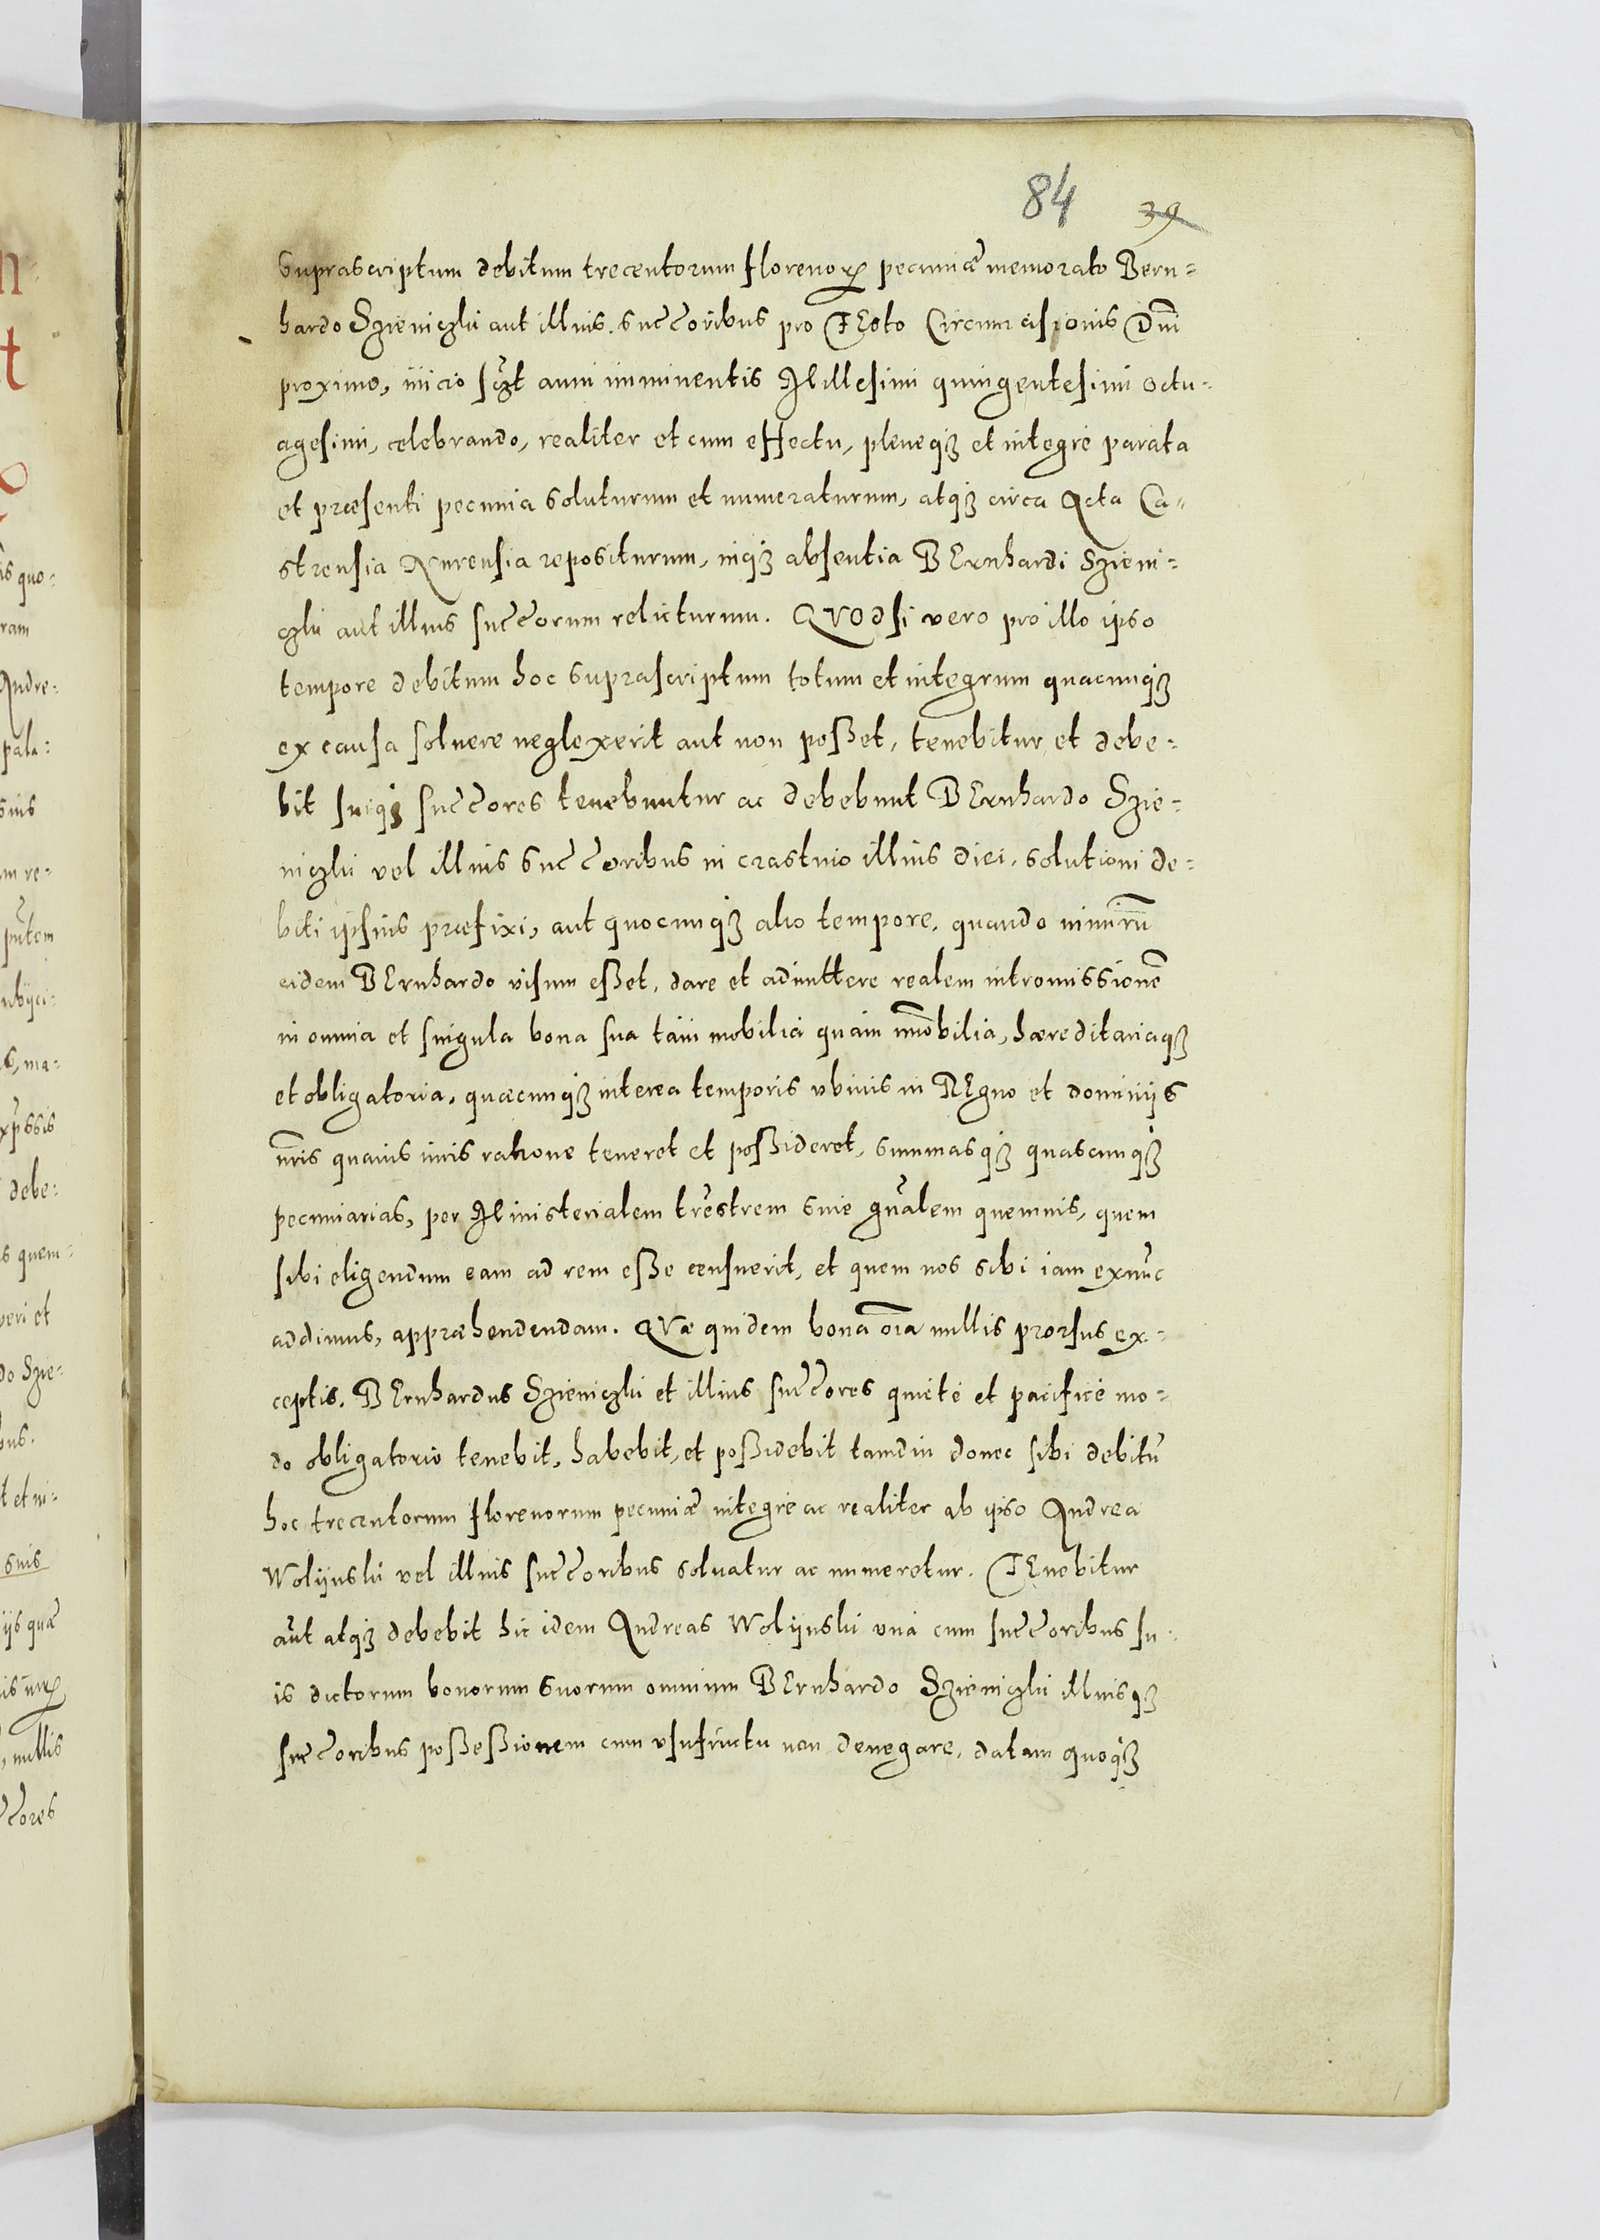 84 39
suprascriptum debitum trecentorum florenoꝝ pecuniæ memorato Bern=
hardo Szieniczki aut illius succ̃oribus pro FEsto Circumcisionis Dnĩ
proximo, inicio sc̃z̃t anni imminentis Millesimi quingentesimi octu=
agesimi, celebrando, realiter et cum effectu, pleneqꝫ et integrè parata
et præsenti pecunia soluturum et numeraturum, atqꝫ circa Acta Ca=
strensia Nurensia repositurum, inqꝫ absentia BErnhardi Szieni=
czki aut illius succ̃orum relicturum. QVOdsi vero pro illo ipso
tempore debitum hoc suprascriptum totum et integrum quacunqꝫ
ex causa soluere neglexerit aut non posset, tenebitur et debe=
bit suiqꝫ succ̃ores tenebuntur ac debebunt BErnhardo Szie=
niczki vel illius succ̃oribus in crastino illius diei, solutioni de=
biti ipsius præfixi, aut quocunqꝫ alio tempore, quando nimirũ
eidem BErnhardo visum esset, dare et admittere realem intromissionẽ
in omnia et singula bona sua tam mobilia quàm im̃obilia, hæreditariaqꝫ
et obligatoria, quæcunqꝫ interea temporis vbiuis in REgno et dominijs
nr̃is quauis iuris ratione teneret et possideret, summasqꝫ quascunqꝫ
pecuniarias, per Ministerialem trr̃estrem siue gñalem quemuis, quem
sibi eligendum eam ad rem esse censuerit, et quem nos sibi iam exnũc
addimus, appræhendendam. QVæ quidem bona oĩa nullis prorsus ex=
ceptis, BErnhardus Szieniczki et illius succ̃ores quietè et pacificè mo=
do obligatorio tenebit, habebit, et possidebit tamdiu donec sibi debitũ
hoc trecentorum florenorum pecuniæ integrè ac realiter ab ipso Andrea
Wolijnski vel illius succ̃oribus soluatur ac numeretur. TEnebitur
aũt atqꝫ debebit hic idem Andreas Wolijnski vnà cum succ̃oribus su=
is dictorum bonorum suorum omnium BErnhardo Szieniczki illiusqꝫ
succ̃oribus possessionem cum vsufructu non denegare, datam quoqꝫ